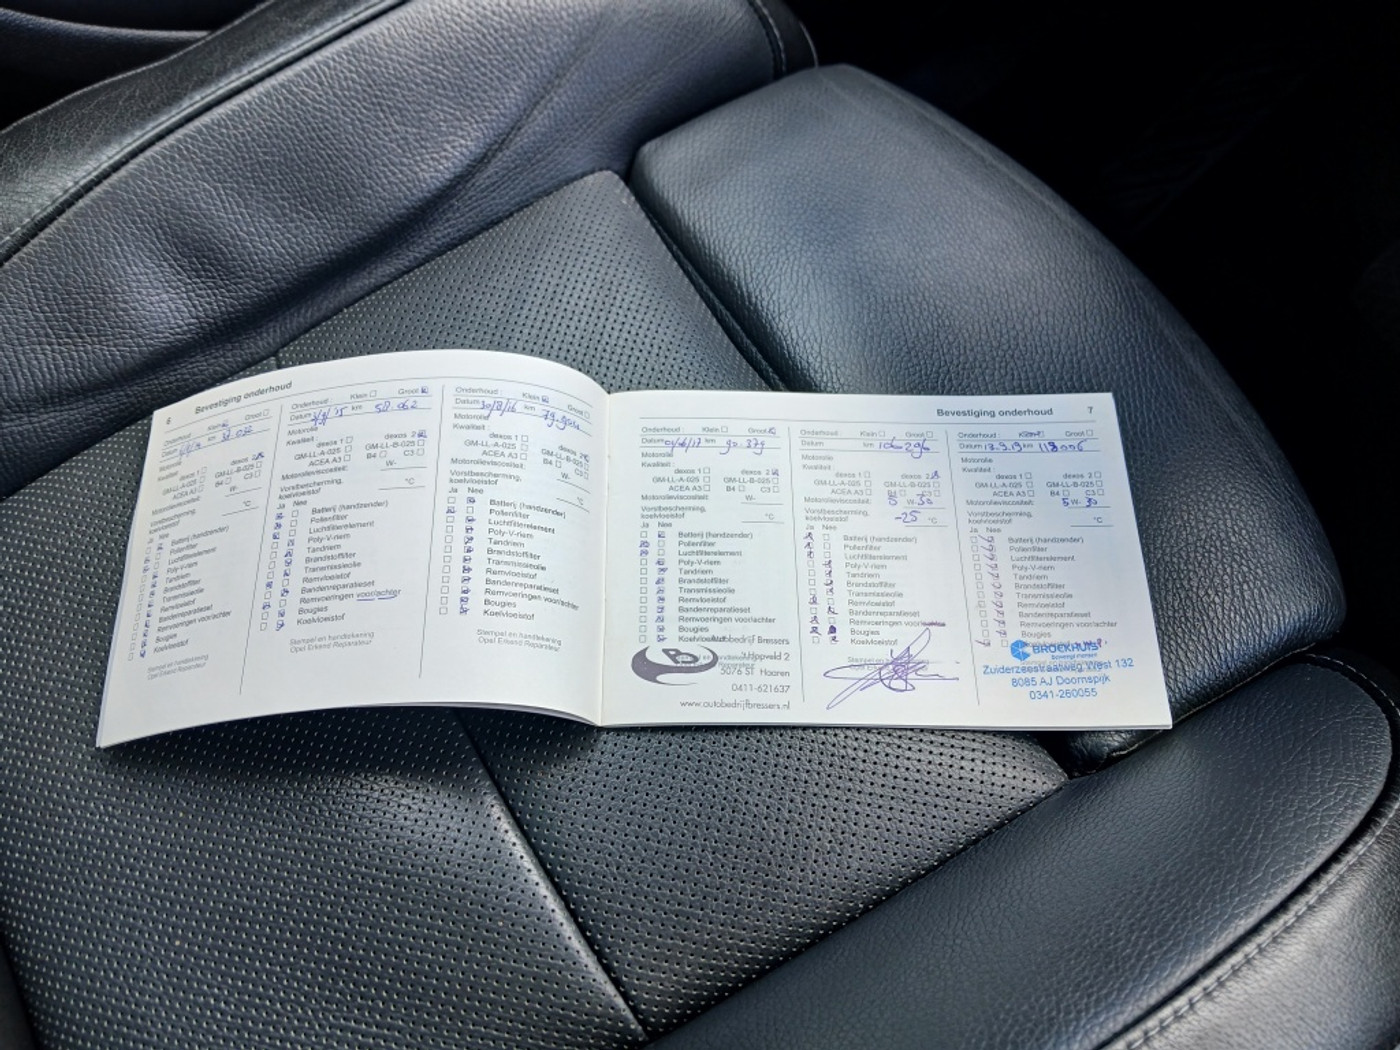 6 Bevestiging onderhoud
Onderhoud Klein Groot
Datum km
Motorolie
Kwaliteit: dexos 1 dexos 2
GM-LL-A-025 GM-LL-B-025
ACEA A3 B4 C3
Motorolieviscositeit: W-
Vorstbescherming, koelvloeistof °C
Ja Nee
Batterij (handzender)
Pollenfilter
Luchtfilterelement
Poly-V-riem
Tandriem
Brandstoffilter
Transmissieolie
Remvloeistof
Bandenreparatieset
Remvoeringen voor/achter
Bougies
Koelvloeistof
Stempel en handtekening
Opel Erkend Reparateur
Onderhoud: Klein Groot
Datum km 58.062
Motorolie
Kwaliteit: dexos 1 dexos 2
GM-LL-A-025 GM-LL-B-025
ACEA A3 B4 C3
Motorolieviscositeit: W-
Vorstbescherming, koelvloeistof °C
Ja Nee
Batterij (handzender)
Pollenfilter
Luchtfilterelement
Poly-V-riem
Tandriem
Brandstoffilter
Transmissieolie
Remvloeistof
Bandenreparatieset
Remvoeringen voor/achter
Bougies
Koelvloeistof
Stempel en handtekening
Opel Erkend Reparateur
Onderhoud: Klein Groot
Datum 30/8/16 km
Motorolie
Kwaliteit: dexos 1 dexos 2
GM-LL-A-025 GM-LL-B-025
ACEA A3 B4 C3
Motorolieviscositeit: W-
Vorstbescherming, koelvloeistof °C
Ja Nee
Batterij (handzender)
Pollenfilter
Luchtfilterelement
Poly-V-riem
Tandriem
Brandstoffilter
Transmissieolie
Remvloeistof
Bandenreparatieset
Remvoeringen voor/achter
Bougies
Koelvloeistof
Stempel en handtekening
Opel Erkend Reparateur
Bevestiging onderhoud 7
Onderhoud: Klein Groot
Datum 01/06/17 km 90.379
Motorolie
Kwaliteit:
dexos 1 dexos 2
GM-LL-A-025 GM-LL-B-025
ACEA A3 B4 C3
Motorolieviscositeit: W-
Vorstbescherming,
koelvloeistof °C
Ja Nee
Batterij (handzender)
Pollenfilter
Luchtfilterelement
Poly-V-riem
Tandriem
Brandstoffilter
Transmissieolie
Remvloeistof
Bandenreparatieset
Remvoeringen voor/achter
Bougies
Koelvloeistof
Autobedrijf Bressers
't Hopveld 2
5076 ST Haaren
0411-621637
www.autobedrijfbressers.nl
Onderhoud: Klein Groot
Datum km 106296
Motorolie
Kwaliteit:
dexos 1 dexos 2
GM-LL-A-025 GM-LL-B-025
ACEA A3 B4 C3
Motorolieviscositeit: 5 W- 30
Vorstbescherming,
koelvloeistof -25 °C
Ja Nee
Batterij (handzender)
Pollenfilter
Luchtfilterelement
Poly-V-riem
Tandriem
Brandstoffilter
Transmissieolie
Remvloeistof
Bandenreparatieset
Remvoeringen voor/achter
Bougies
Koelvloeistof
Onderhoud: Klein Groot
Datum 13.5.19 km 118006
Motorolie
Kwaliteit:
dexos 1 dexos 2
GM-LL-A-025 GM-LL-B-025
ACEA A3 B4 C3
Motorolieviscositeit: 5 W- 30
Vorstbescherming,
koelvloeistof °C
Ja Nee
Batterij (handzender)
Pollenfilter
Luchtfilterelement
Poly-V-riem
Tandriem
Brandstoffilter
Transmissieolie
Remvloeistof
Bandenreparatieset
Remvoeringen voor/achter
Bougies
BROEKHUIS
Beweegt mensen
Zuiderzeestraatweg West 132
8085 AJ Doornspijk
0341-260055